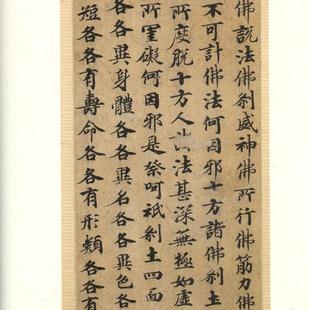 佛說法佛刹威神佛所行佛筋力佛
不可計佛法何因邪十方諸佛刹土
所度脫十方人法甚深無極如虛
所罣礙何因邪是祭呵祇刹土四面
各各異身體各各異名各各異色各
短各各有壽命各各有形類各各有